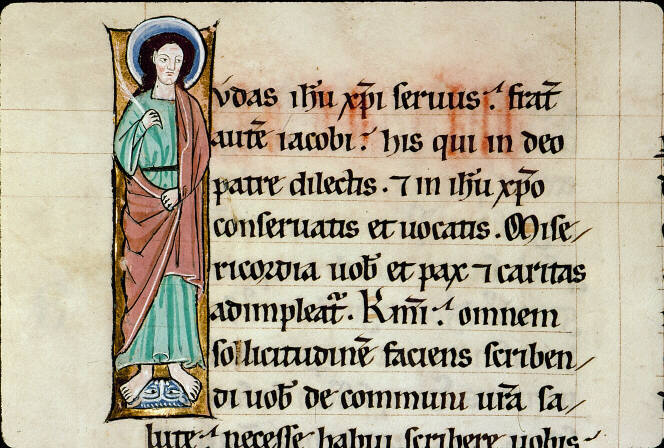 vdas ih̅u xp̅i seruus. frat̅
aute̅ iacobi. his qui in deo
patre dilectis. ⁊ in ih̅u xp̅o
conseruatis et uocatis. Mise/
ricordia uob̅ et pax ⁊ caritas
adimpleat᷑. K̅mi̅. omnem
sollicitudine̅ faciens scriben/
di uob̅ de communi ur̅a sa/
lute. necesse habui scribere uobis